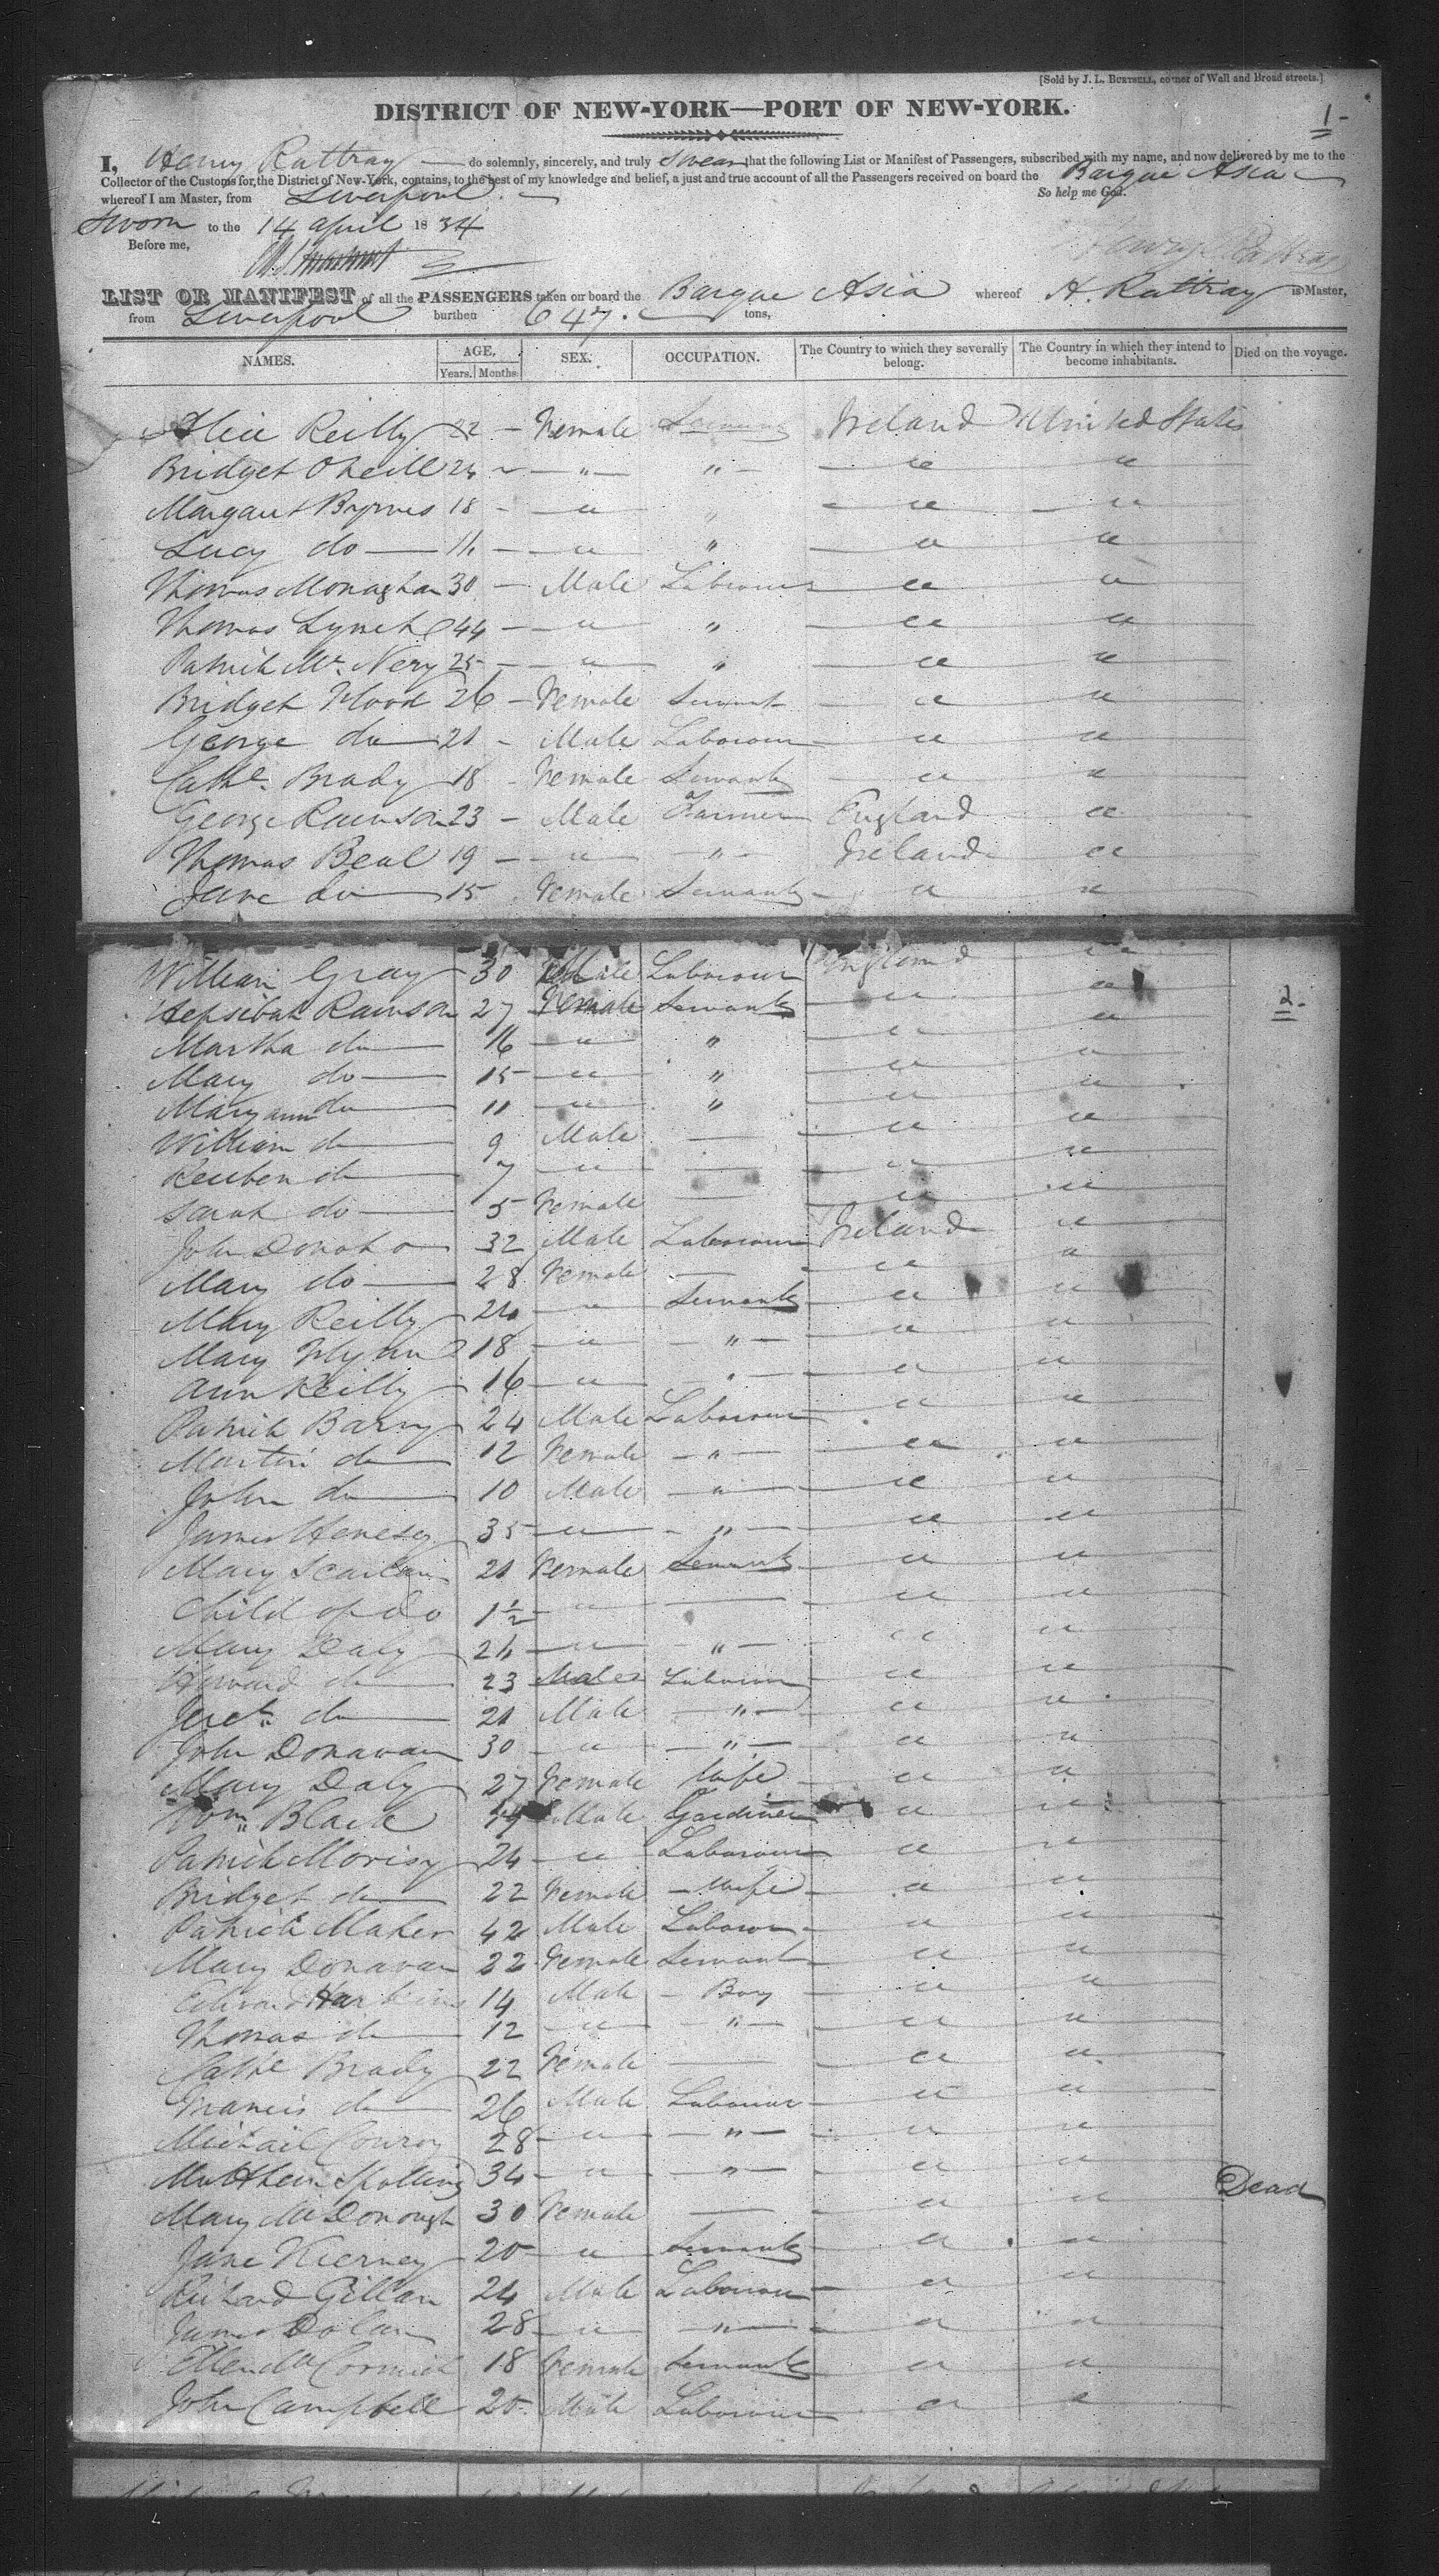 [Sold by J. L. BURTSELL, corner of Wall and Broad streets.]
DISTRICT OF NEW-YORK—PORT OF NEW-YORK.
1-
I, Henry Rattray do solemnly, sincerely, and truly swear that the following List or Manifest of Passengers, subscribed with my name, and now delivered by me to the
Collector of the Customs for the District of New-York, contains, to the best of my knowledge and belief, a just and true account of all the Passengers received on board the Barque Asia
whereof I am Master, from Liverpool. So help me God.
Sworn to the 14 april 1834
Before me,
Henry Rattray
LIST OR MANIFEST of all the PASSENGERS taken on board the Barque Asia whereof H. Rattray is Master,
from Liverpool burthen 647. tons,
NAMES. AGE. Years. Months. SEX. OCCUPATION. The Country to which they severally belong. The Country in which they intend to become inhabitants. Died on the voyage.
Alice Reilly 22 - Female Servant Ireland United States
Bridget Oneill 24 - " " " "
Margaret Byrnes 18 - " " " "
Lucy do 11 - " " " "
Thomas Monaghan 30 - Male Labourer " "
Thomas Lynch 44 - " " " "
Patrick Mc Nery 25 - " " " "
Bridget Flood 26 - Female Servant " "
George do 21 - Male Labourer " "
Cathe. Brady 18 - Female Servant " "
George Rawson 23 - Male Farmer England "
Thomas Beal 19 - " " Ireland "
Jane do 15 Female Servant " "
2-
William Gray 30 Male Labourer England "
Hepsibah Rawson 27 Female Servant " "
Martha do 16 " " " "
Mary do 15 " " " "
Mary ann do 11 " " " "
William do 9 Male — " "
Reuben do 7 " — " "
Sarah do 5 Female — " "
John Donoho 32 Male Labourer Ireland "
Mary do 28 Female — " "
Mary Reilly 24 " Servant " "
Mary Flynn 18 " " " "
Ann Reilly 16 " " " "
Patrick Barry 24 Male Labourer " "
Martin do 12 Female " " "
John do 10 Male " " "
James Henesy 35 " " " "
Mary 21 Female Servant " "
Child of Do 1½ " — " "
Mary Daly 24 " " " "
do 23 Male Labourer " "
do 21 Male " " "
John Donavan 30 " " " "
Mary Daly 27 Female Wife " "
Wm. Black Male Gardiner " "
Patrick Morisy 24 " Labourer " "
Bridget do 22 Female Wife " "
Patrick Maher 42 Male Labourer " "
Mary Donavan 22 Female Servant " "
Edward Harkins 14 Male Boy " "
Thomas do 12 " " " "
Cathe Brady 22 Female — " "
Francis do 26 Male Labourer " "
Michail Conroy 28 " " " "
Matthew 34 " " " " Dead
Mary McDonough 30 Female — " "
Jane Kierney 20 " Servant " "
Richard Gillan 24 Male Labourer " "
James Dolan 28 " " " "
Ellen McCormick 18 Female Servant " "
John Campbell 20 Male Labourer " "